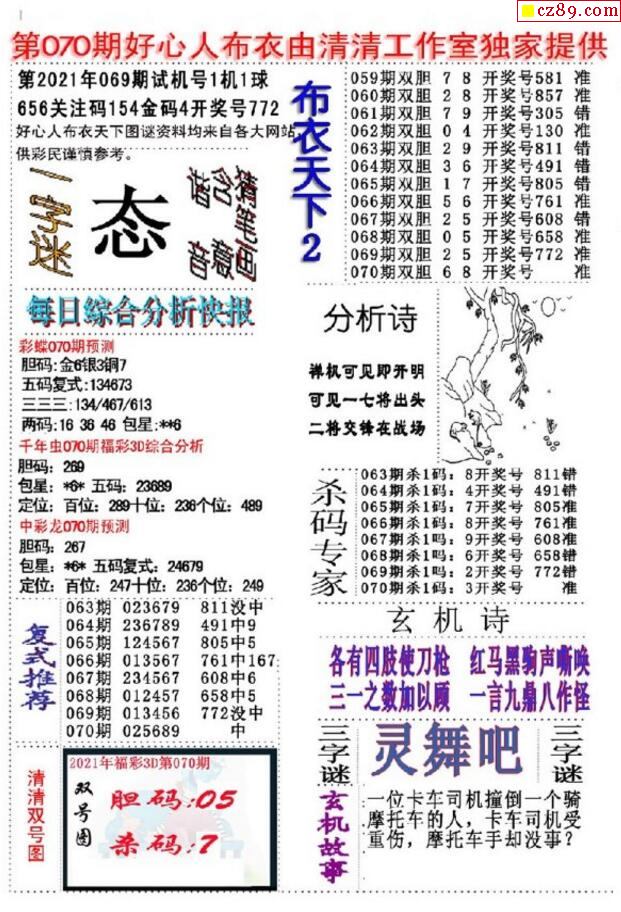 cz89.com
第070期好心人布衣由清清工作室独家提供
第2021年069期试机号1机1球
656关注码154金码4开奖号772
好心人布衣天下图谜资料均来自各大网站,
供彩民谨慎参考。
一字迷
态
猜笔画
含意
谐音
布衣天下2
059期双胆 7 8 开奖号581 准
060期双胆 2 8 开奖号857 准
061期双胆 7 9 开奖号305 错
062期双胆 0 4 开奖号130 准
063期双胆 2 9 开奖号811 错
064期双胆 3 6 开奖号491 错
065期双胆 1 7 开奖号805 错
066期双胆 5 6 开奖号761 准
067期双胆 2 5 开奖号608 错
068期双胆 0 5 开奖号658 准
069期双胆 2 5 开奖号772 准
070期双胆 6 8 开奖号 准
每日综合分析快报
彩蝶070期预测
胆码:金6银3铜7
五码复式:134673
三三三:134/467/613
两码:16 36 46 包星:**6
千年虫070期福彩3D综合分析
胆码: 269
包星: *6* 五码: 23689
定位: 百位: 289十位: 236个位: 489
中彩龙070期预测
胆码: 267
包星: *6* 五码复式: 24679
定位: 百位: 247十位: 236个位: 249
分析诗
禅机可见即开明
可见一七将出头
二将交锋在战场
杀码专家
063期杀1码: 8开奖号 811错
064期杀1码: 4开奖号 491错
065期杀1码: 7开奖号 805准
066期杀1码: 8开奖号 761准
067期杀1吗: 9开奖号 608准
068期杀1吗: 6开奖号 658错
069期杀1码: 2开奖号 772错
070期杀1码: 3开奖号 准
复式推荐
063期 023679 811没中
064期 236789 491中9
065期 124567 805中5
066期 013567 761中167
067期 234567 608中6
068期 012457 658中5
069期 013456 772没中
070期 025689 中
玄机诗
各有四肢使刀枪 红马黑驹声嘶唤
三一之数加以顾 一言九鼎八作怪
三字谜
灵舞吧
三字谜
清清双号图
2021年福彩3D第070期
双号图
胆码:05
杀码:7
玄机故事
一位卡车司机撞倒一个骑
摩托车的人，卡车司机受
重伤，摩托车手却没事?